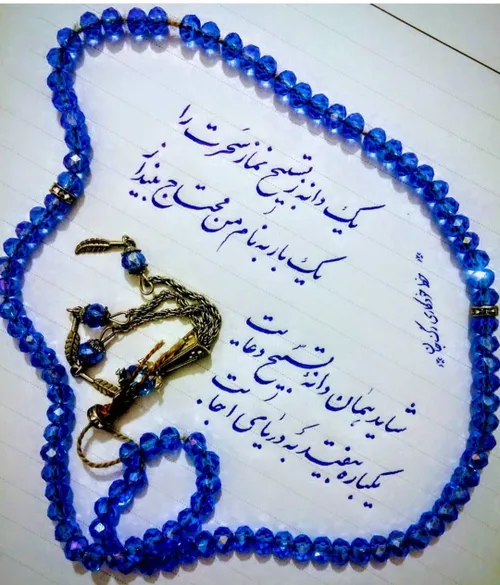 یک دانه ز تسبیح نماز سحرت را
یک بار به نام من محتاج بینداز
شاید همان دانه تسبیح دعایت
یکباره بیفتد به دریای اجابت
خط خودکاری